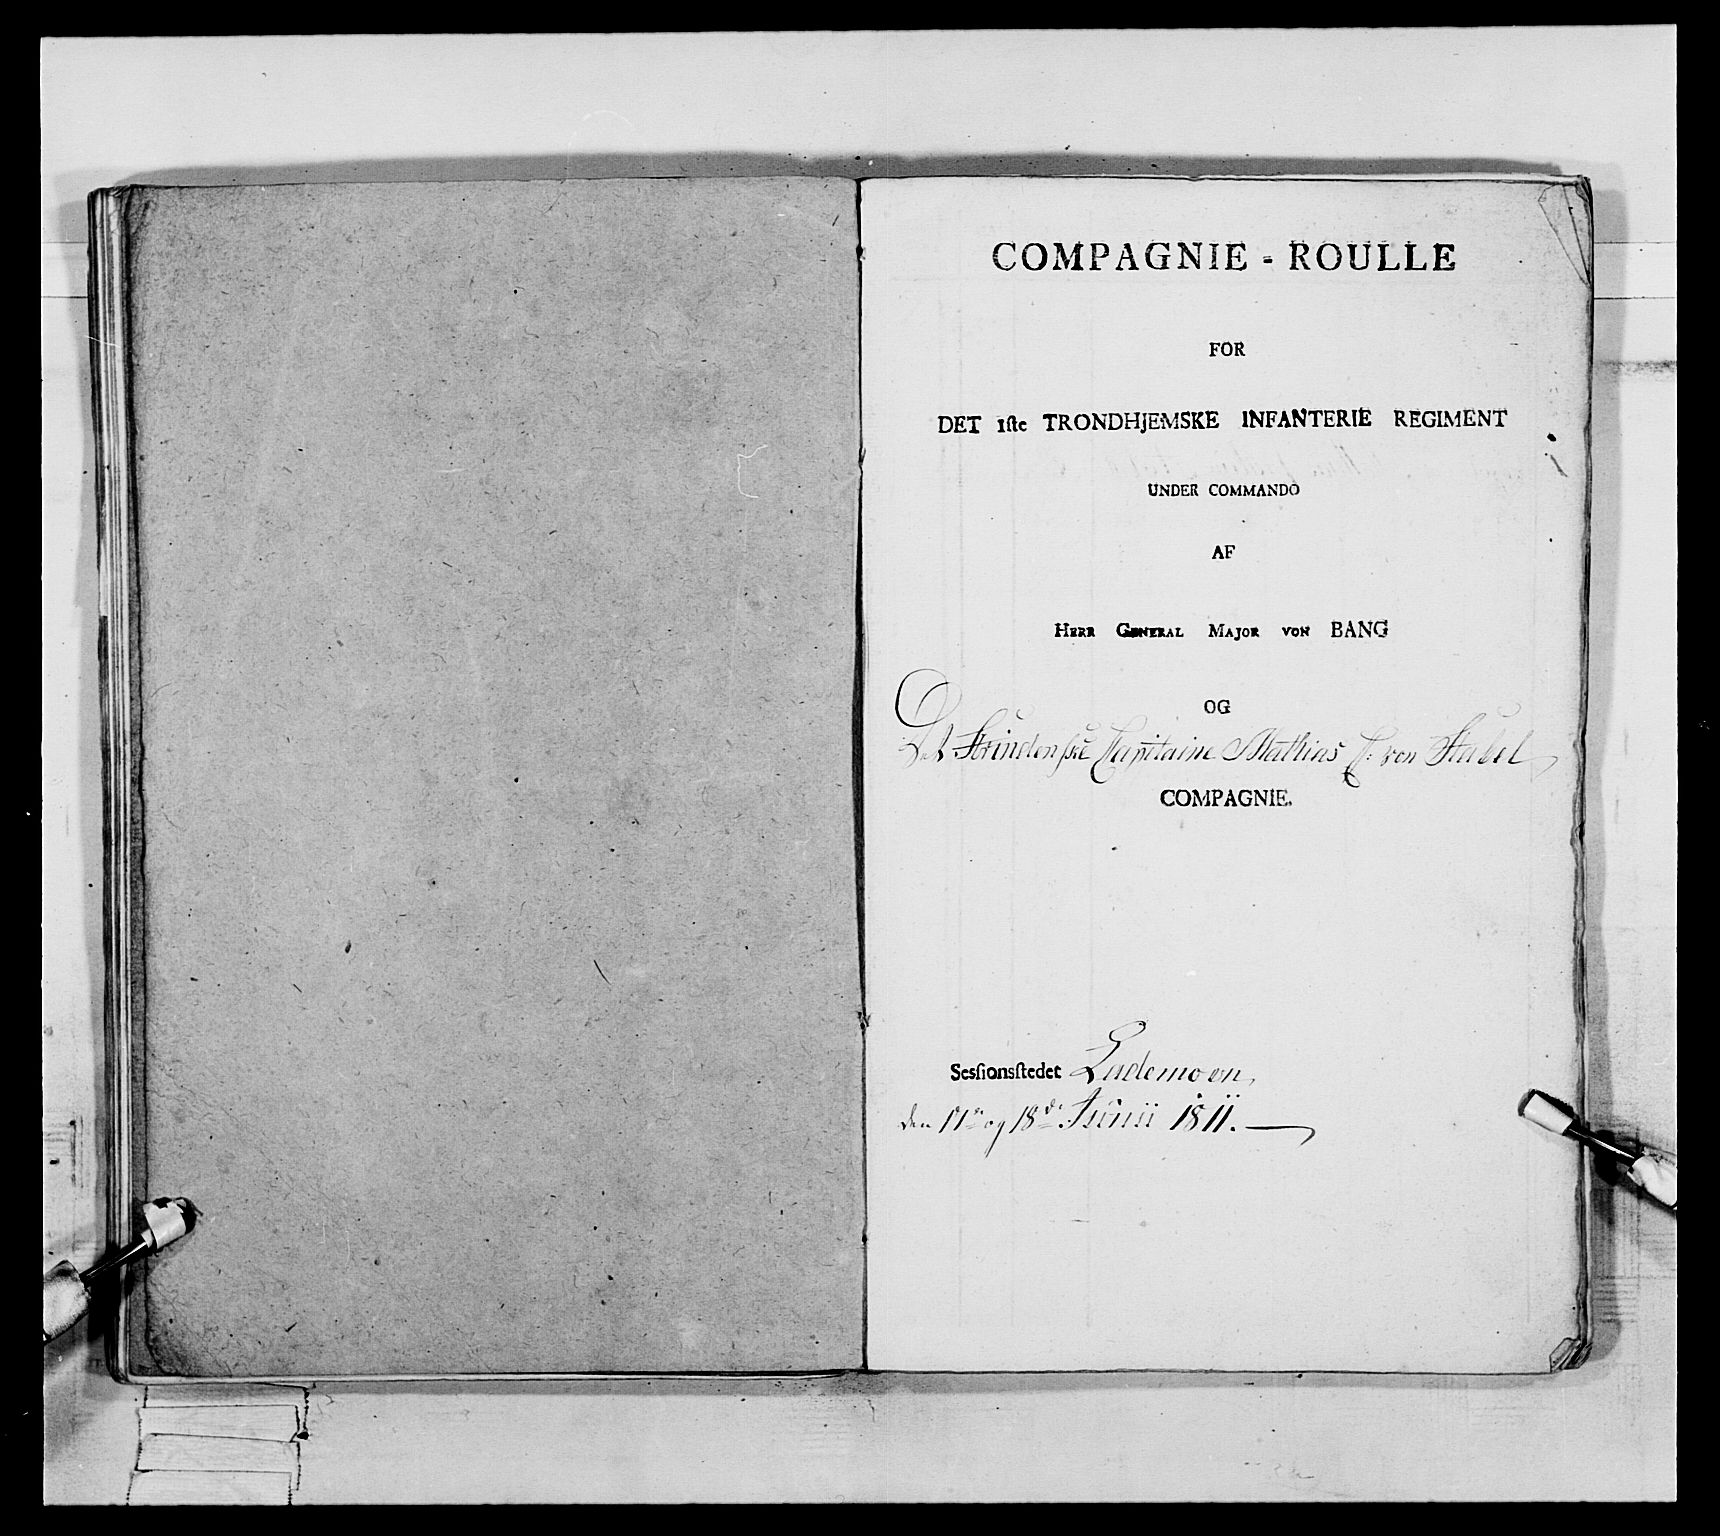 COMPAGNIE - ROULLE
FOR
DET 1ſte TRONDHJEMSKE INFANTERIE REGIMENT
UNDER COMMANDO
AF
HERR GENERAL MAJOR VON BANG
OG
Det Strindenske Capitaine Mathias C: von Stabel
COMPAGNIE.
Sesſionsſtedet Lademoen,
den 17de og 18de Junii 1811.